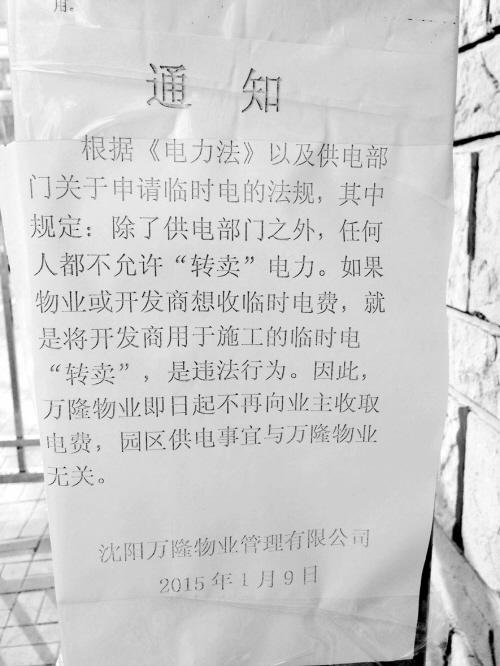 用。
通 知
根据《电力法》以及供电部
门关于申请临时电的法规，其中
规定：除了供电部门之外，任何
人都不允许“转卖”电力。如果
物业或开发商想收临时电费，就
是将开发商用于施工的临时电
“转卖”，是违法行为。因此，
万隆物业即日起不再向业主收取
电费，园区供电事宜与万隆物业
无关。
沈阳万隆物业管理有限公司
2015年1月9日